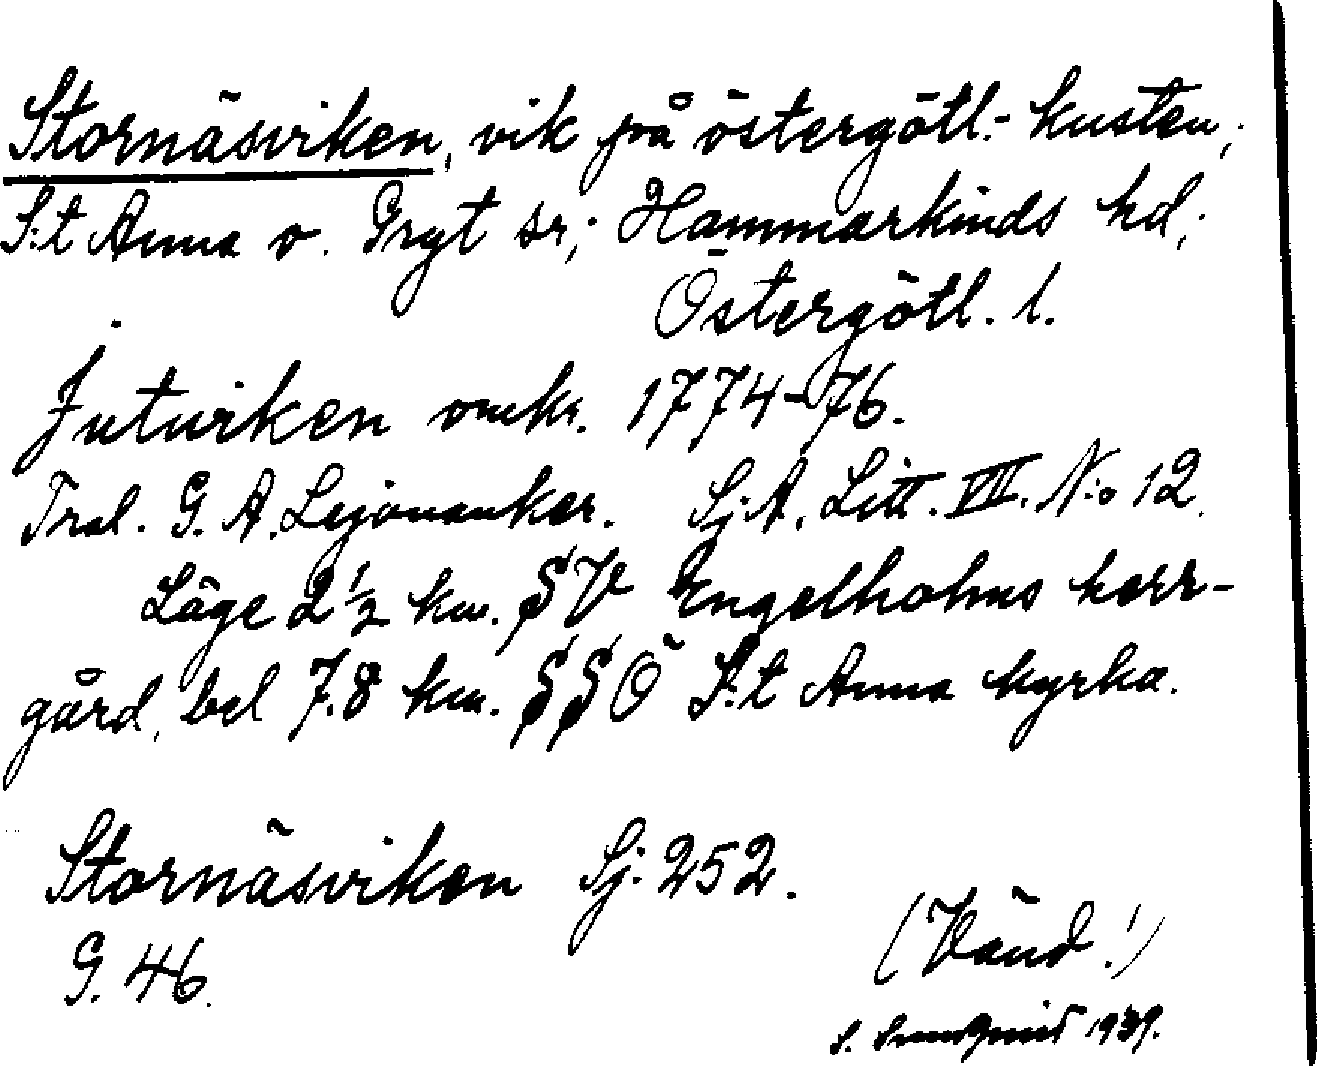 Stornäsviken, vik på östergötl.-kusten;
S:t Anna o. Gryt sr; Hammarkinds hd;
Östergötl. l.
Juturiken omkr. 1774-76.
Trol. G. A. Lejonanker. Sj.A. Litt. VII. N:o 12.
Läge 2 1/2 km. SV Engelholms herr-
gård, bel 7.8 km. SSÖ S:t Anna kyrka.
Stornäsviken Sj. 252.
G. 46.
(Vänd!)
S. 1939.